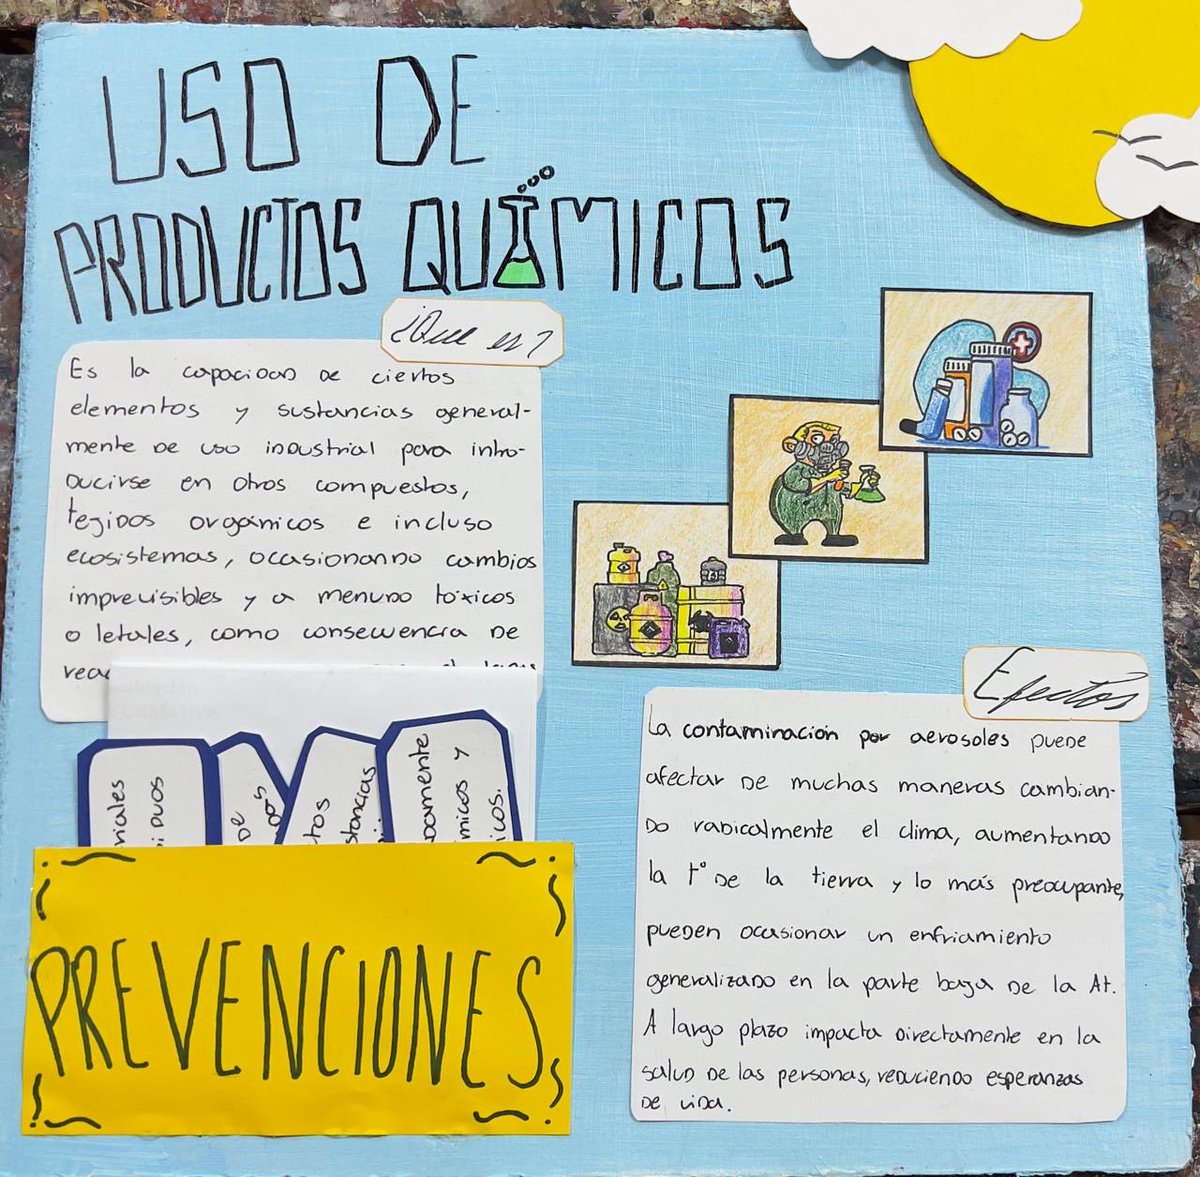 USO DE
PRODUCTOS QUÍMICOS
¿Que es?
Es la capacidad de ciertos
elementos y sustancias general-
mente de uso industrial para intro-
ducirse en otros compuestos,
tejidos orgánicos e incluso
ecosistemas, ocasionando cambios
imprevisibles y a menudo tóxicos
o letales, como consecuencia de
Efectos
La contaminación por aerosoles puede
afectar de muchas maneras cambian-
do radicalmente el clima, aumentando
la t° de la tierra y lo más preocupante,
pueden ocasionar un enfriamiento
generalizado en la parte baja de la At.
A largo plazo impacta directamente en la
salud de las personas, reduciendo esperanzas
de vida.
PREVENCIONES